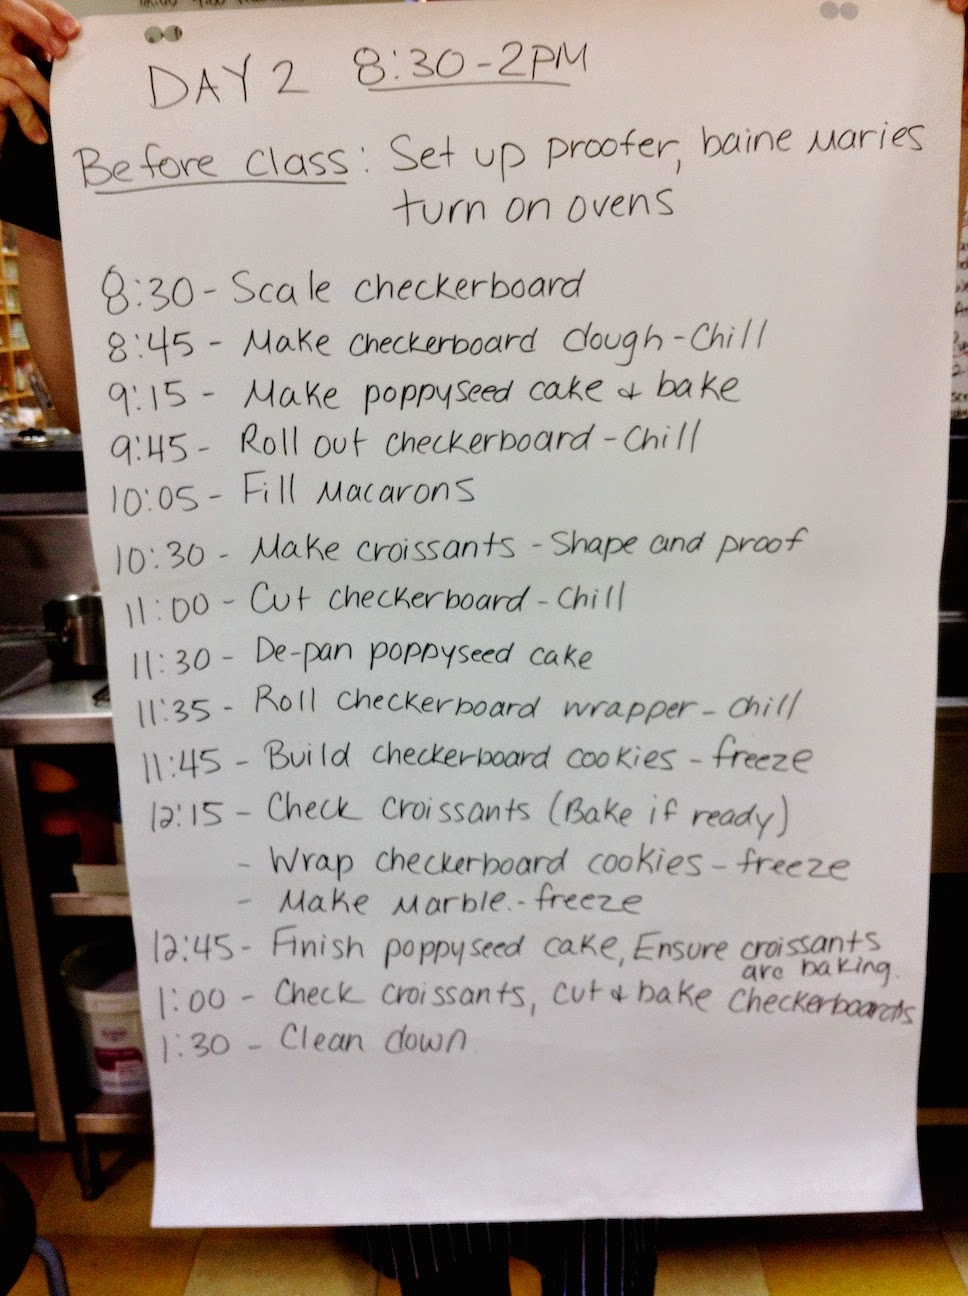 DAY 2 8:30-2PM
Before class: Set up proofer, baine maries
turn on ovens
8:30 - Scale checkerboard
8:45 - Make checkerboard dough - Chill
9:15 - Make poppyseed cake & bake
9:45 - Roll out checkerboard - Chill
10:05 - Fill Macarons
10:30 - Make croissants - Shape and proof
11:00 - Cut checkerboard - Chill
11:30 - De-pan poppyseed cake
11:35 - Roll checkerboard wrapper - chill
11:45 - Build checkerboard cookies - freeze
12:15 - Check croissants (Bake if ready)
- Wrap checkerboard cookies - freeze
- Make Marble. - freeze
12:45 - Finish poppyseed cake, Ensure croissants
are baking.
1:00 - Check croissants, cut & bake checkerboards
1:30 - Clean down